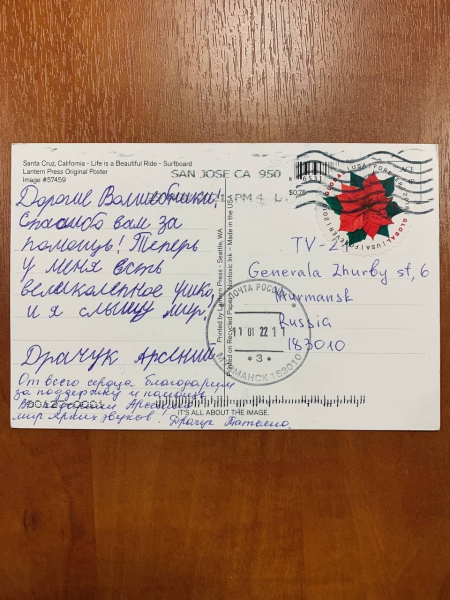 Santa Cruz, California - Life is a Beautiful Ride - Surfboard
Lantern Press Original Poster
Image #57459
SAN JOSE CA 950
PM 4 L
$0.75
GLOBAL USA FOREVER
Дорогие Волшебники!
Спасибо вам за
помощь! Теперь
у меня есть
великолепное ушко,
и я слышу мир!
Драчук Арсений
От всего сердца благодарим
за поддержку и помощь
мир ярких звуков. Драчук Татьяна.
Printed by Lantern Press - Seattle, WA
Printed on Recycled Paper - Nontoxic Ink - Made in the USA
TV-21
Generala Zhurby st, 6
Murmansk
Russia
183010
ПОЧТА РОССИИ
11 01 22 11
*3*
МУРМАНСК 183010
IT'S ALL ABOUT THE IMAGE.